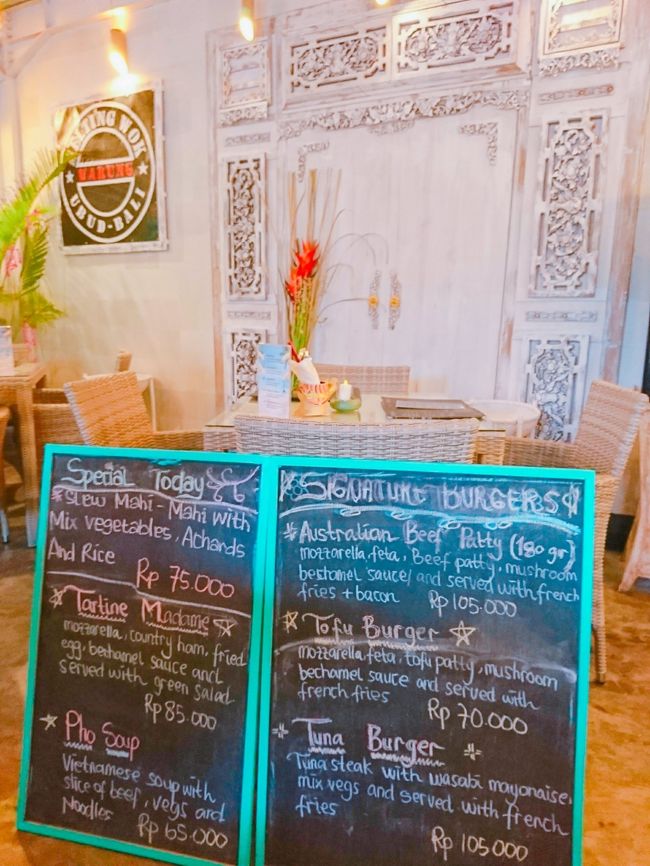 WARUNG
UBUD-BALI
Special Today
Stew Mahi-Mahi with
Mix vegetables, Achards
And Rice
Rp 75.000
Tartine Madame
mozzarella, country ham, fried
egg, bechamel sauce and
served with green salad
Rp 85.000
Pho Soup
Vietnamese soup with
slice of beef, vegs and
Noodles
Rp 65.000
SIGNATURE BURGERS
Australian Beef Patty (180 gr)
mozzarella, feta, Beef patty, mushroom
beshamel sauce/ and served with french
fries + bacon
Rp 105.000
Tofu Burger
mozzarella, feta, tofu patty, mushroom
bechamel sauce and served with
french fries
Rp 70.000
Tuna Burger
Tuna steak with wasabi mayonaise,
mix vegs and served with french
fries
Rp 105.000